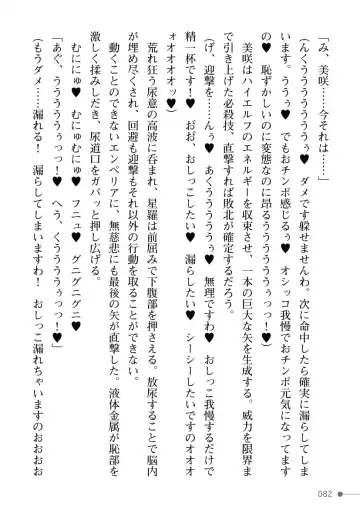 「み、美咲……今それは……」
（んくぅうううううぅ♥　ダメです躱せませんわ。次に命中したら確実に漏らしてしまいます。ううぅ♥　でもおチンポ感じるぅ♥　オシッコ我慢でおチンポ元気になってます♥　恥ずかしいのに変態なのに昂るうううううぅっっ！♥）
　美咲はハイエルフのエネルギーを収束させ、一本の巨大な矢を生成する。威力を限界まで引き上げた必殺技、直撃すれば敗北が確定するだろう。
（げ、迎撃を……んぅ♥　あくぅううううぅ♥　無理ですわ♥　おしっこ我慢するだけで精一杯です！♥　おお、おしっこしたい♥　漏らしたい♥　シーシーしたいですのオオオオォオオオオッ♥）
　荒れ狂う尿意の高波に呑まれ、星羅は前屈みで下腹部を押さえる。放尿することで脳内が埋め尽くされ、回避も迎撃もそれ以外の行動を取ることができない。
　動くことのできないエンペリアに、無慈悲にも最後の矢が直撃した。液体金属が恥部を激しく揉みしだき、尿道口をガバッと押し広げる。
　むにににゅ♥　むにゅむにゅ♥　フニュ♥　グニグニグニ♥
「あぐ、ううううううぅっっ！♥　へう、くぅうううぅっっっ！♥」
（もうダメ……漏れる！　漏らしてしまいますわ！　おしっこ漏れちゃいますのおおおお
082